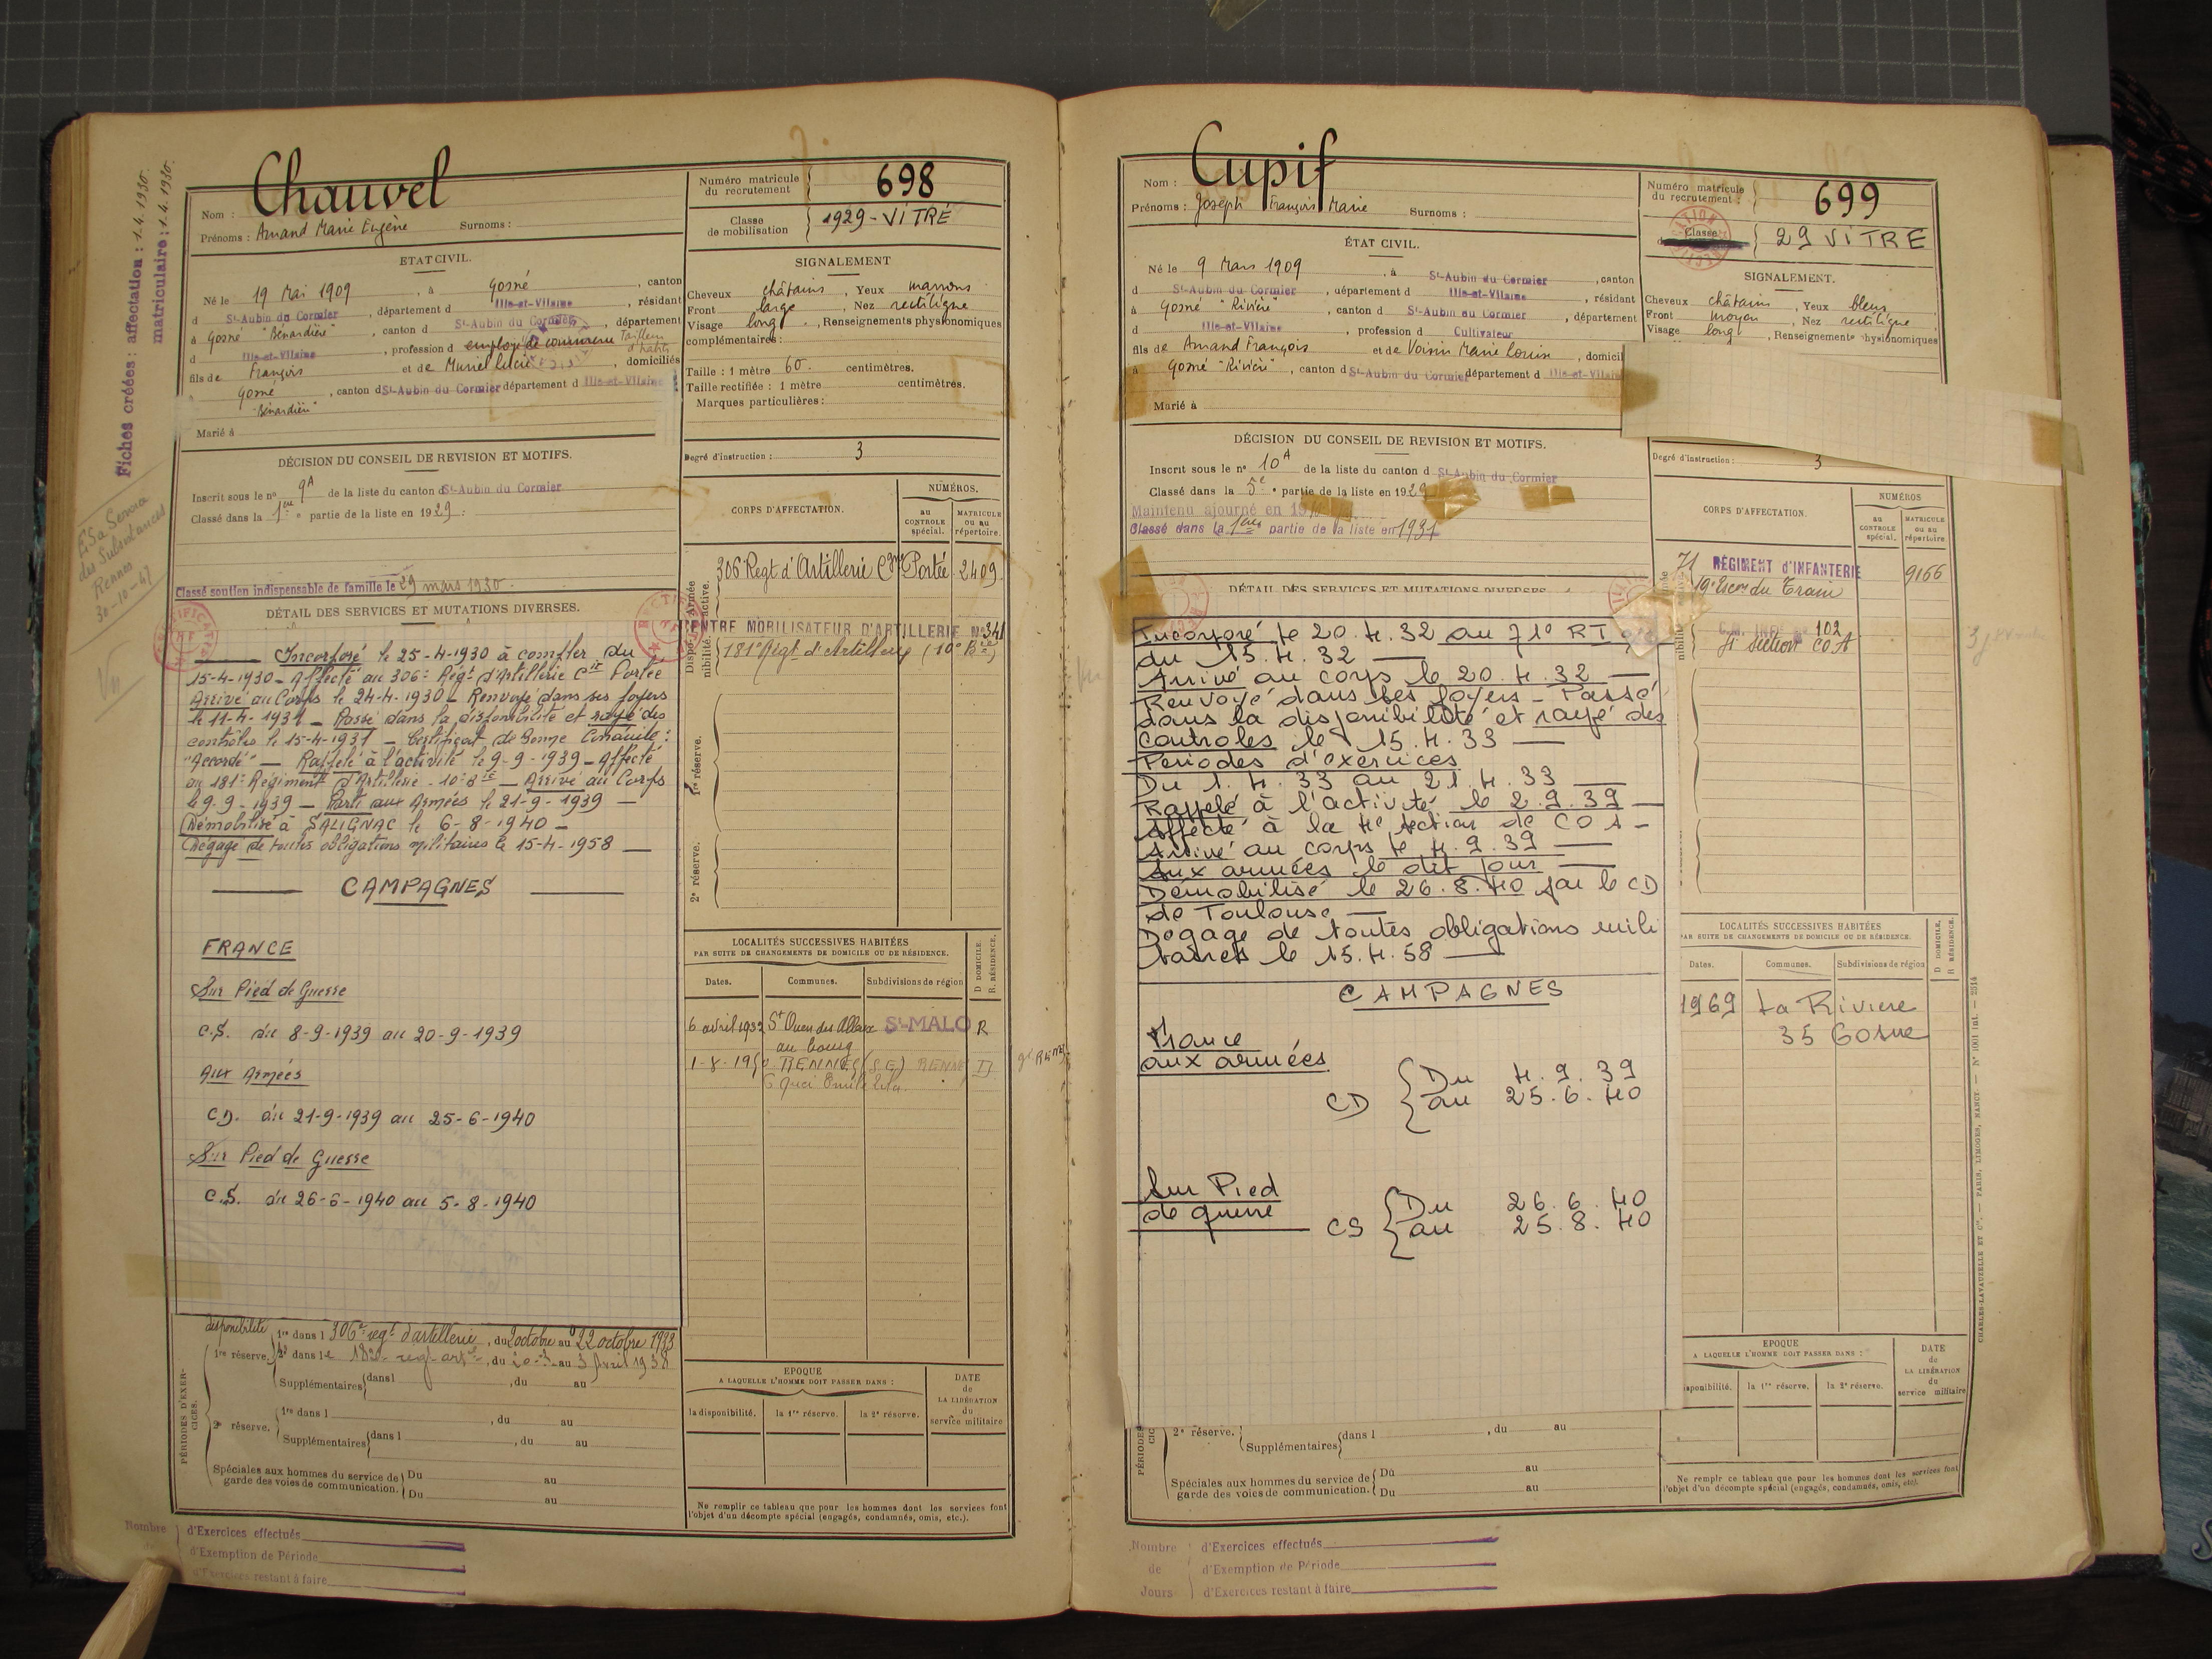 Fiches créées : affectation : 1.4.1930.
matriculaire : 1.4.1930.
ESa Service
des Subsistances
Rennes
30-10-47
Vu
Nom : Chauvel
Prénoms : Amand Marie Eugène Surnoms :
ETAT CIVIL.
Né le 19 Mai 1909, à Gosné, canton
d St-Aubin du Cormier, département d Ille-et-Vilaine, résidant
à Gosné "Bénardière", canton d St-Aubin du Cormier, département
d Ille-et-Vilaine, profession d employé de commerce Tailleur d'habits
fils de François et de Muriel Lucie, domiciliés
à Gosné "Bénardière", canton d St-Aubin du Cormier département d Ille-et-Vilaine
Marié à
DÉCISION DU CONSEIL DE REVISION ET MOTIFS.
Inscrit sous le no 9A de la liste du canton d St-Aubin du Cormier
Classé dans la 1ère partie de la liste en 1929 :
Classé soutien indispensable de famille le 29 mars 1930.
DÉTAIL DES SERVICES ET MUTATIONS DIVERSES.
Incorporé le 25-4-1930 à compter du
15-4-1930 - Affecté au 306e Régt d'Artillerie Cie Portée
Arrivé au Corps le 24-4-1930 - Renvoyé dans ses foyers
le 11-4-1931 - Passé dans la disponibilité et rayé des
contrôles le 15-4-1931 - Certificat de Bonne Conduite :
"Accordé" - Rappelé à l'activité le 9-9-1939 - Affecté
au 181e Régiment d'Artillerie - 10e Bie - Arrivé au Corps
le 9-9-1939 - Parti aux Armées le 21-9-1939 -
Démobilisé à SALIGNAC le 6-8-1940 -
Dégagé de toutes obligations militaires le 15-4-1958 -
CAMPAGNES
FRANCE
Sur Pied de Guerre
C.S. du 8-9-1939 au 20-9-1939
Aux Armées
CD. du 21-9-1939 au 25-6-1940
Sur Pied de Guerre
C.S. du 26-6-1940 au 5-8-1940
PÉRIODES D'EXERCICES.
disponibilité
1re réserve. 1re dans l 306e regt d'artillerie, du 2 octobre au 22 octobre 1933
2e dans le 182e regt art, du 20-3 au 3 avril 1938
Supplémentaires dans l , du au
2e réserve. 1re dans l , du au
Supplémentaires dans l , du au
Spéciales aux hommes du service de garde des voies de communication. Du au
Du au
Nombre de
d'Exercices effectués
d'Exemption de Période
d'Exercices restant à faire
Numéro matricule du recrutement 698
Classe de mobilisation 1929 - VITRÉ
SIGNALEMENT
Cheveux châtains, Yeux marrons
Front large, Nez rectiligne
Visage long, Renseignements physionomiques
complémentaires :
Taille : 1 mètre 60. centimètres.
Taille rectifiée : 1 mètre centimètres.
Marques particulières :
Degré d'instruction : 3
CORPS D'AFFECTATION.
NUMÉROS.
au CONTROLE spécial.
MATRICULE ou au répertoire.
Disponibilité. Armée active.
306 Regt d'Artillerie Cie Portée 2409
CENTRE MOBILISATEUR D'ARTILLERIE No 341
181e Régt d'Artillerie (10e Bie)
1re réserve.
2e réserve.
LOCALITÉS SUCCESSIVES HABITÉES
PAR SUITE DE CHANGEMENTS DE DOMICILE OU DE RÉSIDENCE.
D DOMICILE.
R. RÉSIDENCE.
Dates. Communes. Subdivisions de région
6 avril 1932 St Ouen des Alleux St-MALO R
au bourg
RENNES (S.E) RENNES D
6 quai Emile Zola
EPOQUE
A LAQUELLE L'HOMME DOIT PASSER DANS :
DATE de LA LIBÉRATION du service militaire
la disponibilité. la 1re réserve. la 2e réserve.
Ne remplir ce tableau que pour les hommes dont les services font
l'objet d'un décompte spécial (engagés, condamnés, omis, etc.).
Nom : Cupif
Prénoms : Joseph François Marie Surnoms :
ÉTAT CIVIL.
Né le 9 Mars 1909, à St-Aubin du Cormier, canton
d St-Aubin du Cormier, département d Ille-et-Vilaine, résidant
à Gosné "Rivière", canton d St-Aubin du Cormier, département
d Ille-et-Vilaine, profession d Cultivateur
fils de Amand François et de Voisin Marie Louise, domicil
à Gosné "Rivière", canton d St-Aubin du Cormier département d Ille-et-Vilaine
Marié à
DÉCISION DU CONSEIL DE REVISION ET MOTIFS.
Inscrit sous le no 10A de la liste du canton d St-Aubin du Cormier
Classé dans la 5e partie de la liste en 1929
Maintenu ajourné en 19
Classé dans la 1ère partie de la liste en 1931
DÉTAIL DES SERVICES ET MUTATIONS DIVERSES.
Incorporé le 20.4.32 au 71e RI
du 15.4.32
Arrivé au corps le 20.4.32
Renvoyé dans ses foyers - Passé
dans la disponibilité et rayé des
controles le 15.4.33
Périodes d'exercices
Du 1.4.33 au 21.4.33
Rappelé à l'activité le 2.9.39
Affecté à la 4e section de COA -
Arrivé au corps le 4.9.39
Aux armées le dit jour
Démobilisé le 26.8.40 par le CD
de Toulouse
Dégagé de toutes obligations mili
taires le 15.4.58
CAMPAGNES
France
aux armées
CD Du 4.9.39
au 25.6.40
Sur Pied
de guerre
CS Du 26.6.40
au 25.8.40
PÉRIODES
2e réserve. Supplémentaires dans l , du au
Spéciales aux hommes du service de garde des voies de communication. Du au
Du au
Nombre de Jours
d'Exercices effectués
d'Exemption de Période
d'Exercices restant à faire
Numéro matricule du recrutement 699
Classe 29 VITRE
SIGNALEMENT.
Cheveux châtains, Yeux bleus
Front moyen, Nez rectiligne
Visage long, Renseignements physionomiques
Degré d'instruction : 3
CORPS D'AFFECTATION.
NUMÉROS
au CONTROLE spécial.
MATRICULE ou au répertoire.
71 RÉGIMENT d'INFANTERIE 9166
19e Escon du Train
102
4e section COA
LOCALITÉS SUCCESSIVES HABITÉES
PAR SUITE DE CHANGEMENTS DE DOMICILE OU DE RÉSIDENCE.
D DOMICILE.
R RÉSIDENCE.
Dates. Communes. Subdivisions de région
1969 La Riviere
35 Gosne
EPOQUE
A LAQUELLE L'HOMME DOIT PASSER DANS :
DATE de LA LIBÉRATION du service militaire
isponibilité. la 1re réserve. la 2e réserve.
Ne remplir ce tableau que pour les hommes dont les services font
l'objet d'un décompte spécial (engagés, condamnés, omis, etc).
CHARLES-LAVAUZELLE ET Cie. — PARIS, LIMOGES, NANCY. — No 1001 Int. — 2514